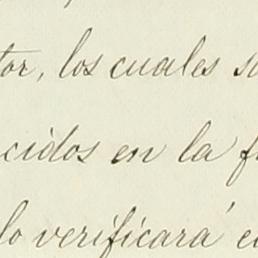 tor, los cuales s
cidos en la f
lo verificará e